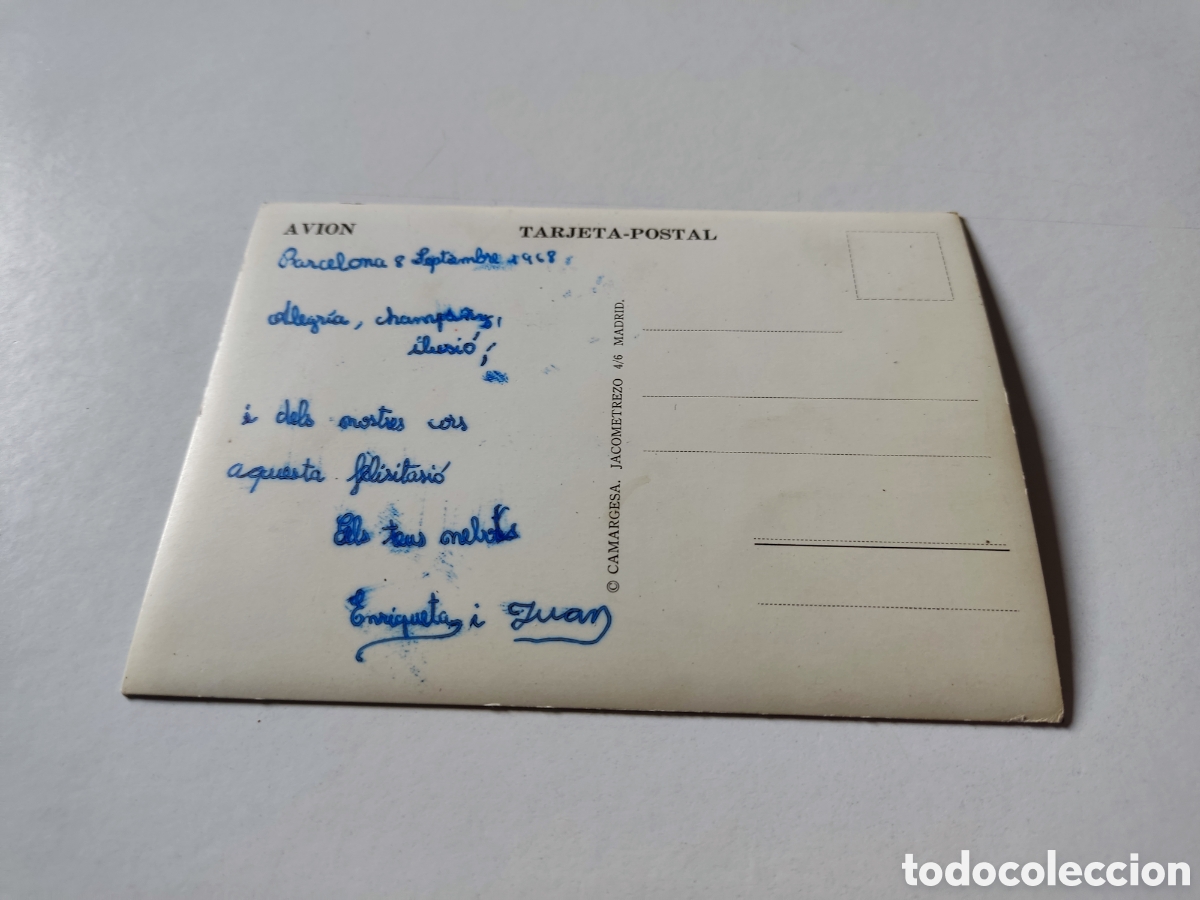 AVION
TARJETA-POSTAL
Barcelona 8 Septembre 1968
Alegría, champany,
ilusió,
i dels nostres cors
aquesta felisitasió
Els teus nebots
Enriqueta i Juan
© CAMARGESA. JACOMETREZO 4/6 MADRID.
todocoleccion